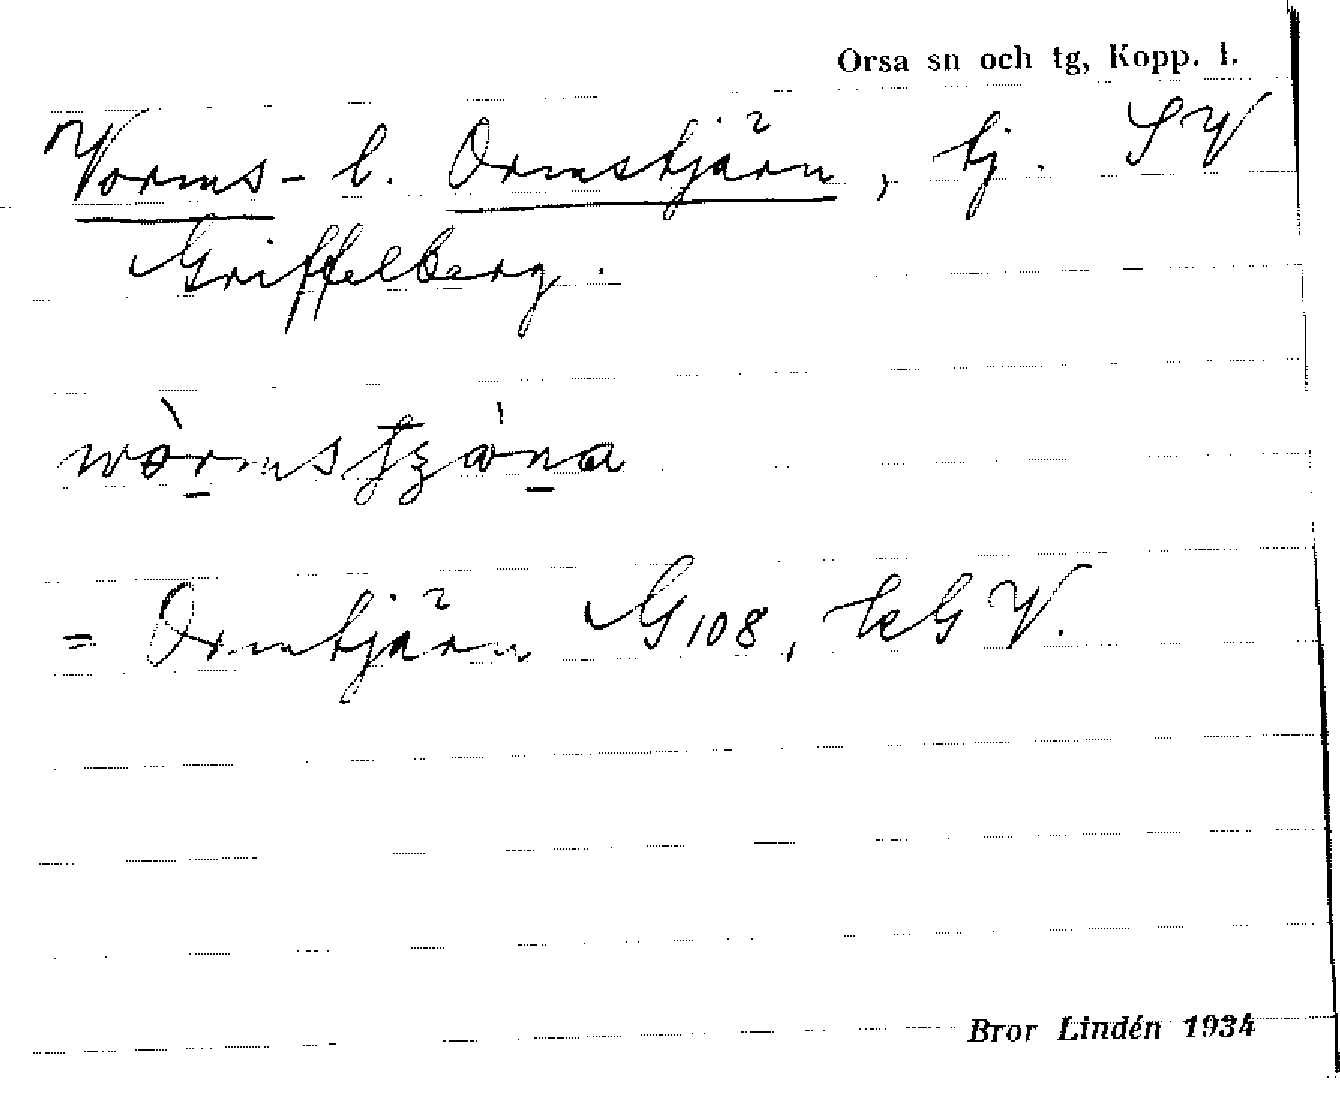 Orsa sn och tg, Kopp. l.
Vorms- l. Ormstjärn, tj. SV
Griffelberg.
= Ormtjärn G108, tcGV.
Bror Lindén 1934